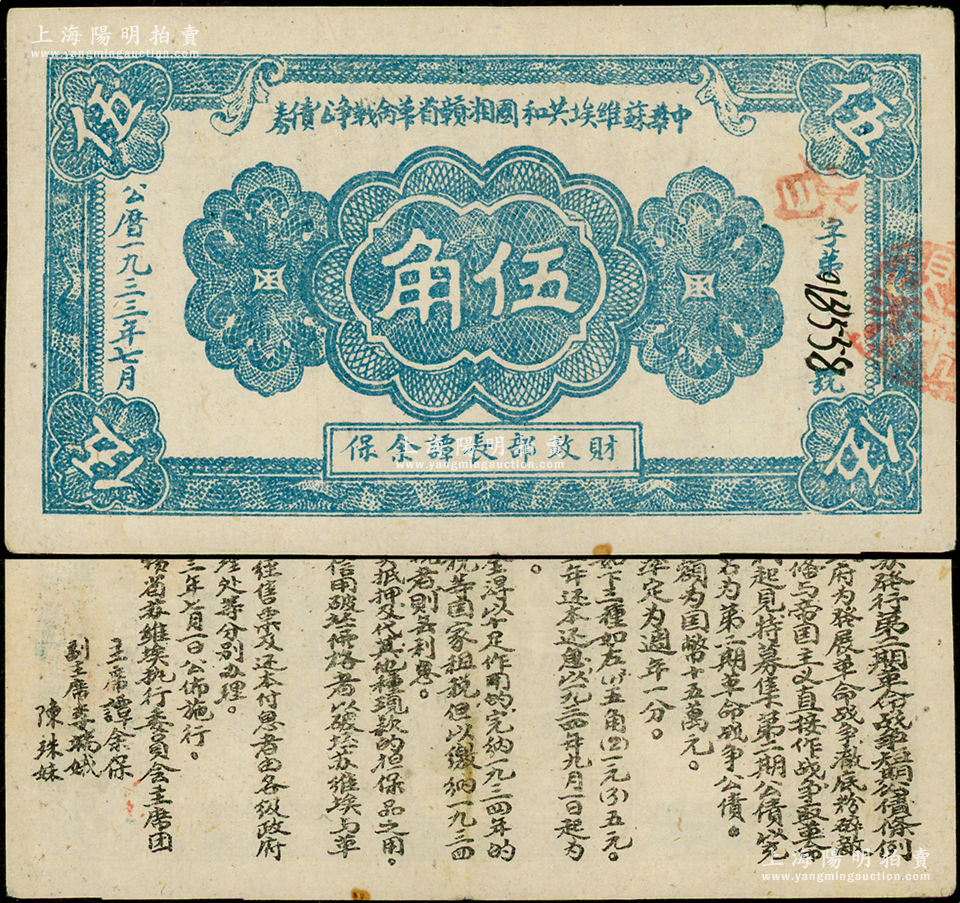 上海陽明拍賣
www.yangmingauction.com
中華蘇維埃共和國湘贛省革命戰爭公債券
伍
伍
公曆一九三三年七月
伍角
字第
018558
號
財政部長譚余保
伍
伍
发行第二期革命战争公債条例
府为发展革命战争澈底粉碎敵
修与帝国主义直接作战争取革命
起見特募集第二期公債以完
名为第二期革命战争公債。
額为国幣十五萬元。
率定为週年一分。
如下三種如左(1)五角(2)一元(3)五元。
年还本还息以一九三四年九月一日起为
。
全得以十足作用的完納一九三四年的
税等国家租税但以繳納一九三四
者則無利息。
抵押及代其他種现款的担保品之用。
信用破坏價格者以破坏苏維埃与革
經售票及还本付息者由各級政府
处等分别办理。
三年七月一日公佈施行。
省苏維埃执行委員会主席团
主席譚余保
副主席
陳珠妹
上海陽明拍賣
www.yangmingauction.com